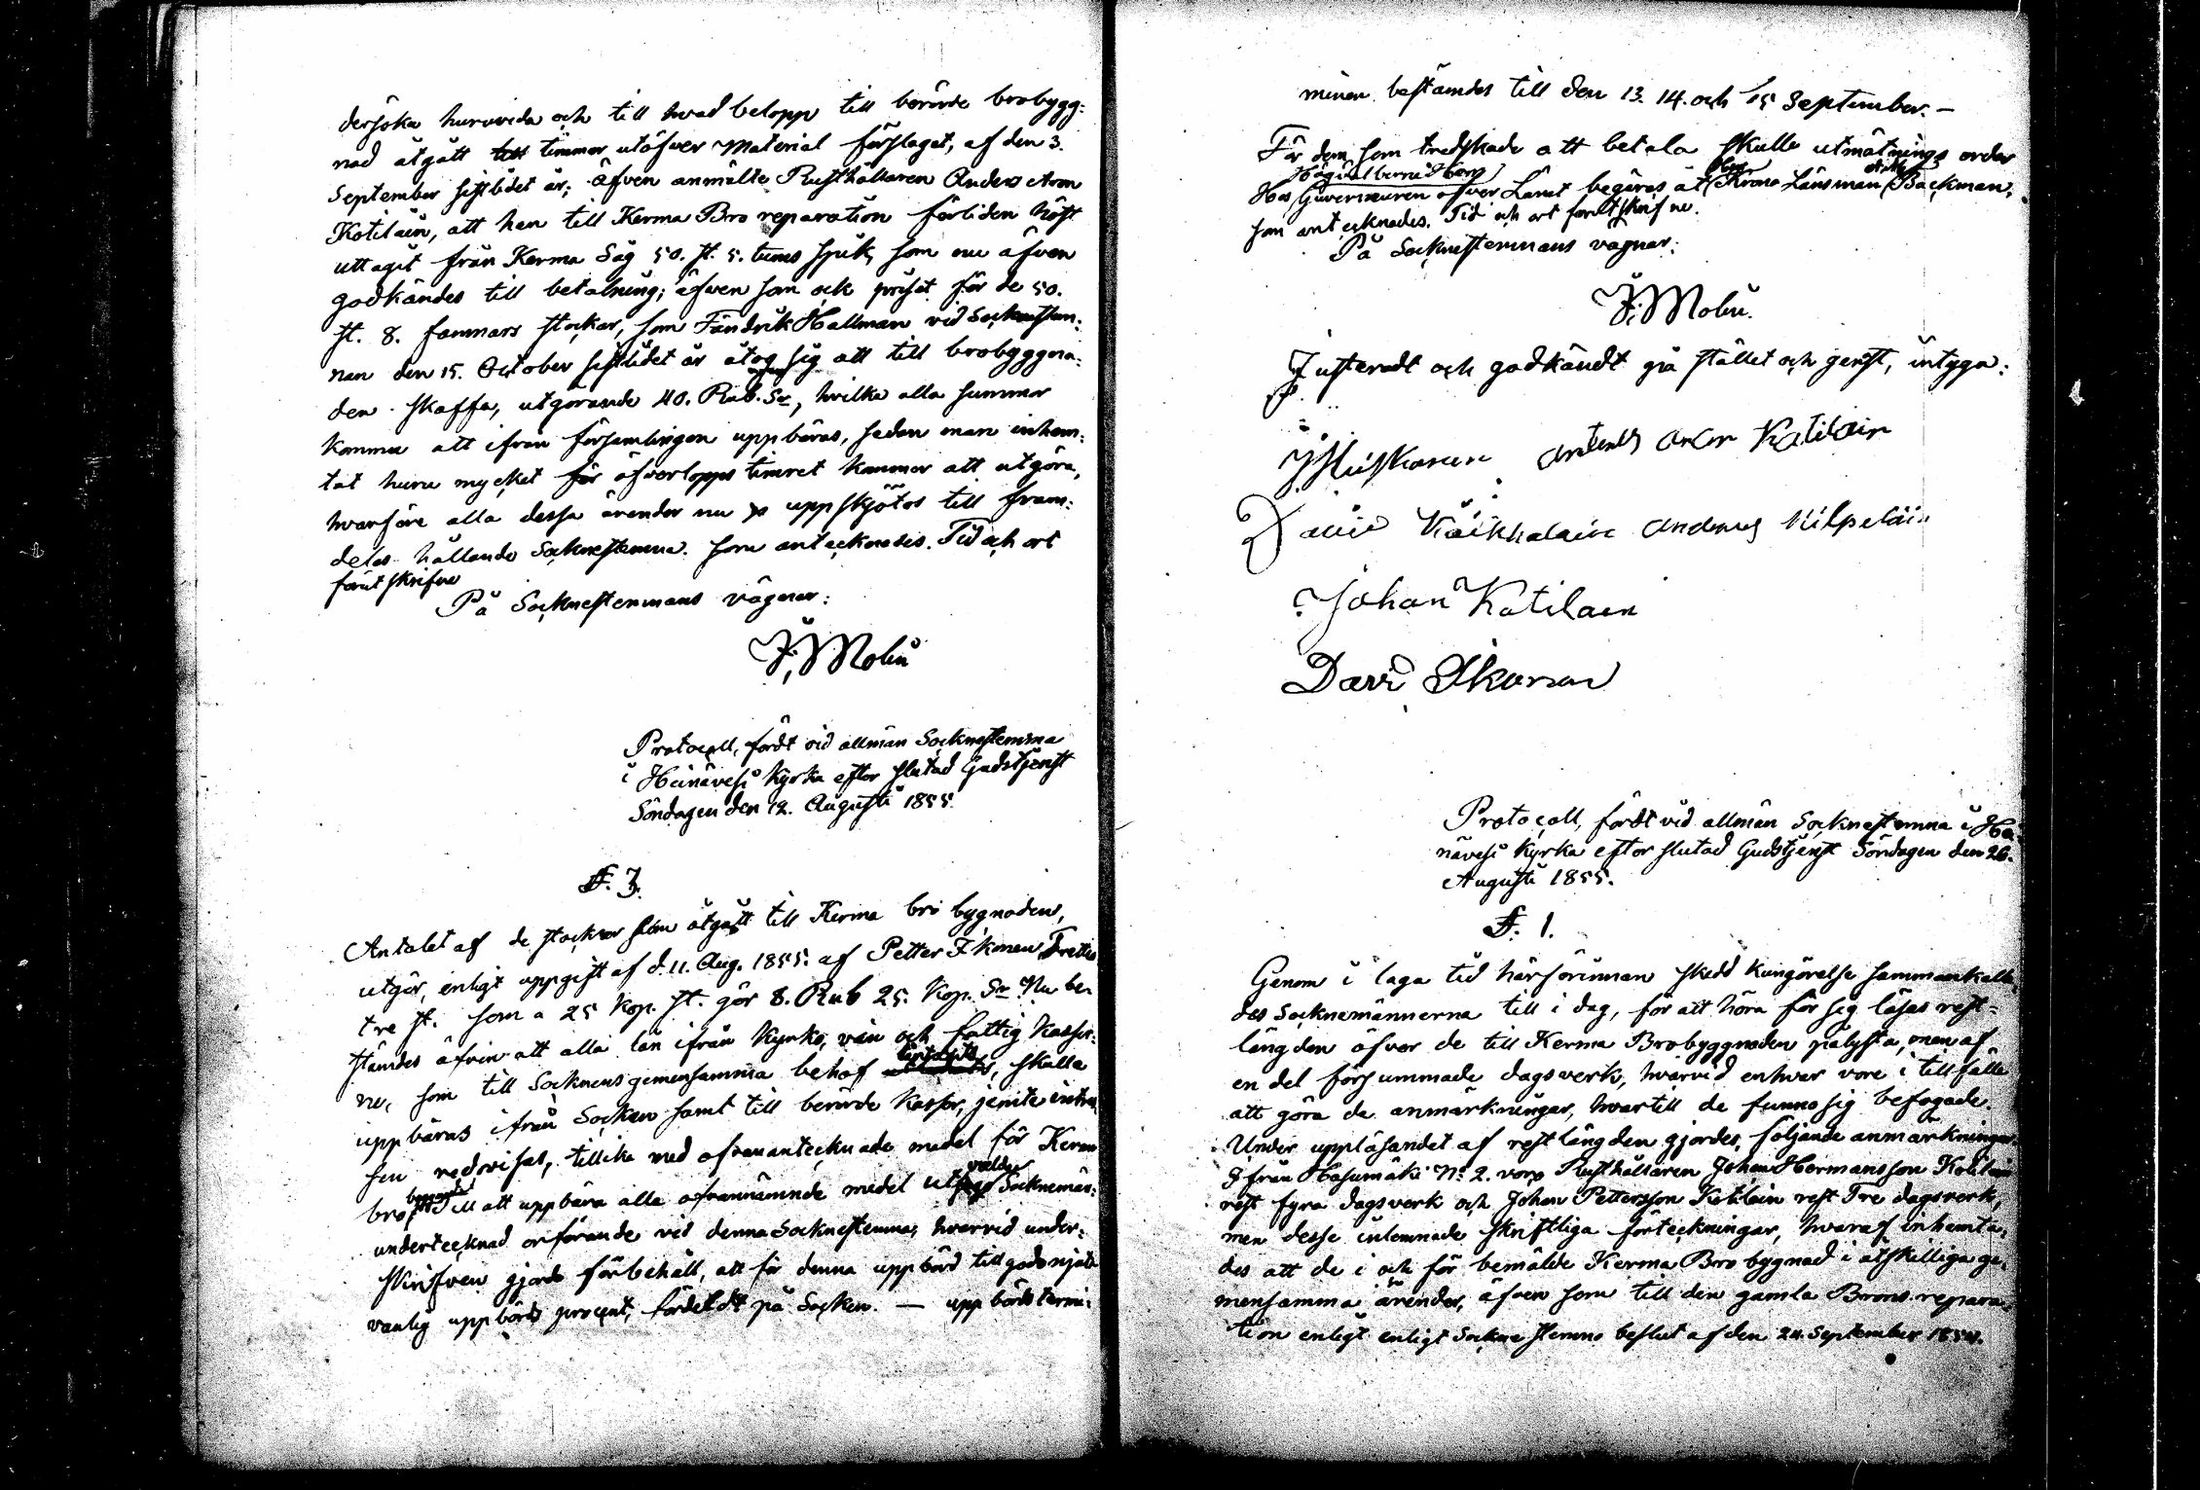 dersöka huruvida och till hvad belopp till berörde brobygg:
nad åtgått timmer utöfver Material förslaget, af den 3.
September sistlidet år; äfven anmälte Rusthållaren Anders Aron
Kotilain, att han till Kerma Bro reparation förliden höst
uttagit från Kerma Såg 50. st. 5. tums spik, som nu äfven
godkändes till betalning; äfven som ock priset för de 50.
st. 8. famnars stockar, som Fändrik Hallman vid Socknestem:
nan den 15. October sistlidet år åtog sig att till brobyggna:
den skaffa, utgörande 40. Rub. Sr, hvilka alla summor
komma att ifrån församlingen uppbäras, sedan man inhem:
tat huru mycket för öfverlopps timret kommer att utgöra,
hvarföre alla dessa ärender nu uppskjötos till fram:
deles hållande Socknestemma. Som antecknades. Tid och ort
förutskrifne
På Socknestemmans vägnar:
F. J. Molin
Protocoll, fördt vid allmän Socknestemma
i Heinävesi Kyrka efter slutad Gudstjenst
Söndagen den 12. Augusti 1855.
§. 3.
Antalet af de stockar som åtgått till Kerma bro bygnaden,
utgör, enligt uppgift af d. 11. Aug. 1855. af Petter Ikonen Trettio
tre st. som a 25 Kop. st. gör 8. Rub 25. Kop. Sr Nu be:
stämdes äfven att alla lån ifrån Kyrko, vin och fattig Kassor:
ne, som till Socknens gemensamma behof, skulle
uppbäras ifrån Socken samt till berörde Kassor, jemte intres:
sen redovisas, tillika med ofvanantecknade medel för Kerma
bro bygnad Till att uppbära alla ofvannämnde medel utsågo Socknemän:
undertecknad ordförande vid denna Socknestemma, hvarvid under:
skrifven gjorde förbehåll, att för denna uppbörd tillgodonjuta
vanlig uppbörds procent, fördeldt på Socken. — uppbörds termi:
minen bestämdes till den 13. 14. och 15 September. —
För dem som tredskade att betala skulle utmätnings order
Hos Högvälborne Herr
Guverneuren öfver Länet begäras åt Krono Länsman Backman,
som antecknades. Tid och ort förutskrifne.
På Socknestemmans vägnar:
F. J. Molin.
Justeradt och godkändt på stället och genast, intyga:
J Huiskonen Anders Aron Kotilain
David Kaikkalain Anders Kilpeläin
Johan Kotilain
Davi Ikonen
Protocoll, fördt vid allmän Socknestemma i Hei
nävesi Kyrka efter slutad Gudstjenst Söndagen den 26.
Augusti 1855.
§. 1.
Genom i laga tid härförinnan skedd kungörelse sammankalla
des Socknemännerna till i dag, för att höra för sig läsas rest-
längden öfver de till Kerma Brobyggnaden pålysta, men af
en del försummade dagsverk, hvarvid enhvar vore i tillfälle
att göra de anmärkningar, hvartill de funno sig befogade.
Under uppläsandet af restlängden gjordes följande anmärkningar.
Ifrån Hasumäki No 2. voro Rusthållaren Johan Hermansson Kotilain
rest fyra dagsverk och Johan Pettersson Kotilain rest Tre dagsverk,
men desse inlemnade skriftliga förteckningar, hvaraf inhemta:
des att de i och för bemälde Kerma Bro bygnad i åtskilliga ge:
mensamma ärender, äfven som till den gamla Brons repara:
tion enligt enligt Socknestemmo beslut af den 24. September 1854.